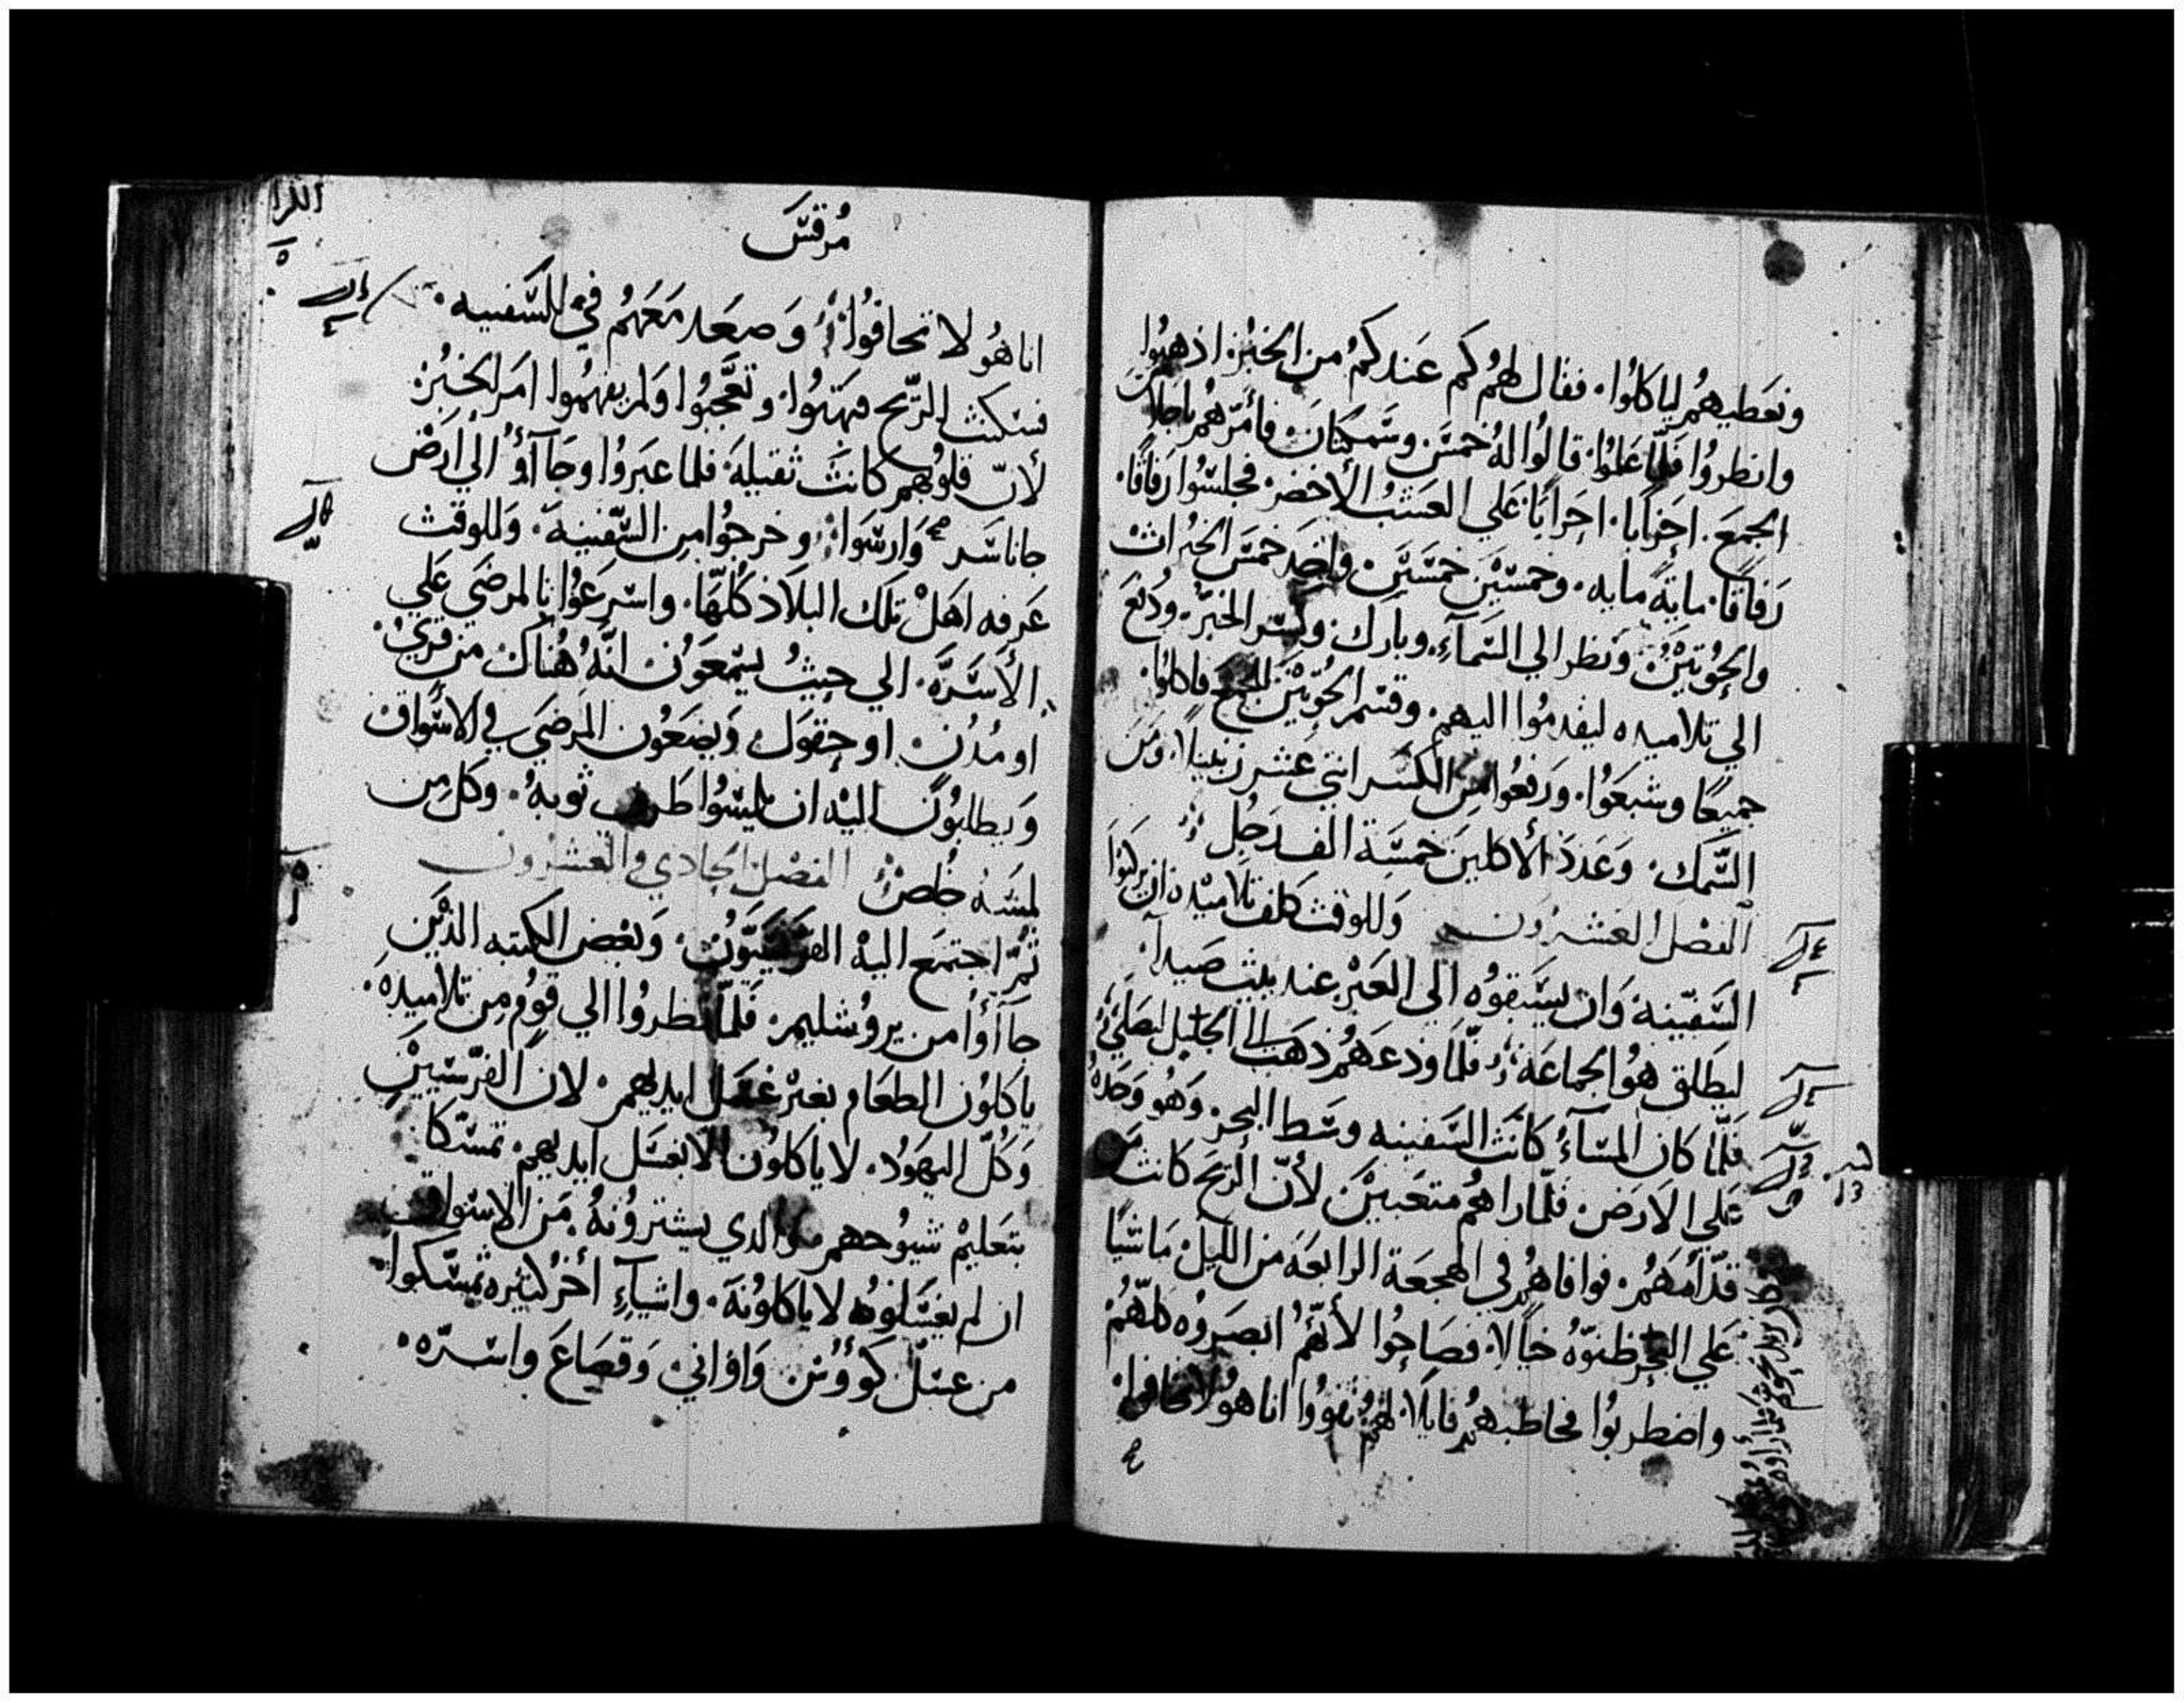 ونعطيهم لياكلوا. فقال لهم كم عندكم من الخبز. اذهبوا
وانظروا فلما علموا. قالوا له خمس وسمكتان. فأمرهم باجلاس
الجمع. احزابا. احزابا. علي العشب الأخضر. فجلسوا رفاقا.
رفاقا. مايه مايه. وخمسين خمسين. واخد خمس الخبزات
والحوتين. ونظر الي السمآء. وبارك. وكسر الخبز. ودفع
الي تلاميده ليقدموا اليهم. وقسم الحوتين للجمع فاكلوا.
جميعا وشبعوا. ورفعوا من الكسر اثني عشر زنبيلا. ومن
السمك. وعدد الأكلين خمسة الف رجل
الفصل العشرون وللوقت كلف تلاميده ان يركبوا
السفينه وان يسبقوه الي العبر عند بيت صيدا.
ليطلق هو الجماعه فلما ودعهم ذهب الي الجليل ليصلي
فلما كان المسآء كانت السفينه وسط البحر. وهو وحده
علي الارض. فلما راهم متعبين لأن الريح كانت من
قدامهم. فوافاهم في الهجعة الرابعه من الليل. ماشيا
علي البحر ظنوه خيالا. فصاحوا لأنهم ابصروه كلهم
واضطربوا فخاطبهم قايلا. لهم ثقووا انا هو لا تخافوا.
مرقس
انا هو لا تخافوا. وصعد معهم في السفينه.
فسكنت الريح فبهتوا. وتعجبوا ولم يفهموا امر الخبز.
لأن قلوبهم كانت ثقيله. فلما عبروا وجآأوا الي ارض
جاناسر وارسوا. وخرجوا من السفينه. وللوقت
عرفه اهل تلك البلاد كلها. واسرعوا بالمرضي علي
الأسره. الي حيث يسمعون انه هناك من قري.
او مدن. او حقول. ويضعون المرضي في الاسواق
ويطلبون اليه ان يلمسوا طرف ثوبه. وكل من
لمسه خلص الفصل الحادي والعشرون
ثم اجتمع اليه الفريسيون. وبعض الكتبه الذين
جآأوا من يروشليم. فلما نظروا الي قوم من تلاميده.
ياكلون الطعام بغير غسل ايديهم. لان الفريسيين
وكل اليهود. لا ياكلون الا بغسل ايديهم. تمسكا
بتعليم شيوخهم والدي يشترونه. من الاسواق
ان لم يغسلوه لا ياكلونه. واشيآء أخر كثيره تمسكوا
من غسل كوؤس. واواني. وقصاع واسره.